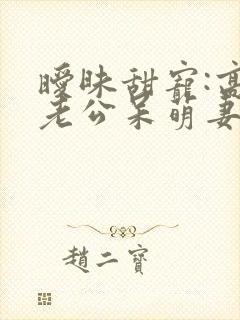 曖昧甜寵:高
老公呆萌妻
趙二寶